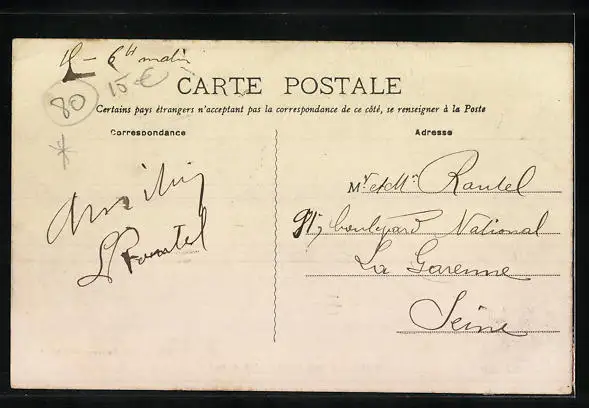 6 h matin
15 €
80
CARTE POSTALE
Certains pays étrangers n'acceptant pas la correspondance de ce côté, se renseigner à la Poste
Correspondance
Adresse
Mr et Mme Rautel
91, boulevard National
La Garenne
Seine
Rautel